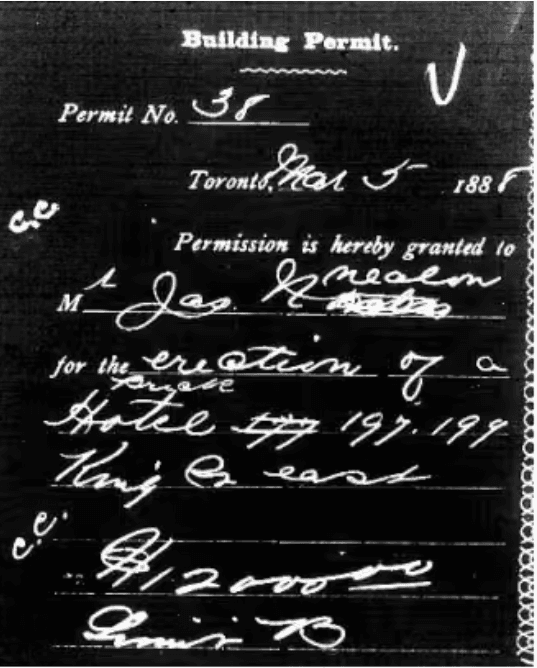 Building Permit.
Permit No. 38
Toronto, Mar 5 1888
c.c.
Permission is hereby granted to
Mr Jas. Nealon
for the erection of a
brick
Hotel 197. 199
King St east
c.c.
$12000.00
Limit B